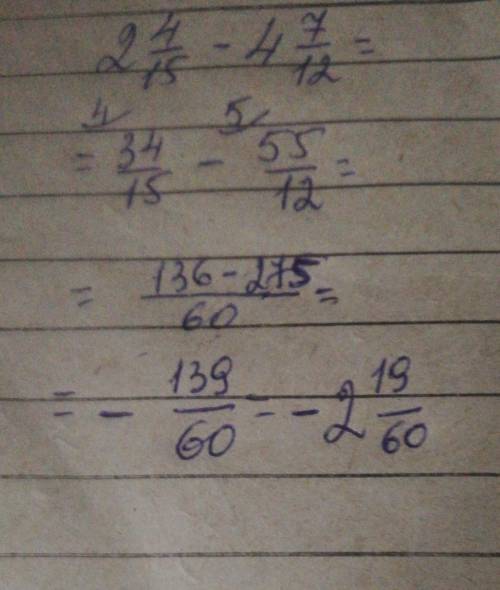 2 4/15 - 4 7/12 =
= 34/15 (4) - 55/12 (5) =
= (136 - 275)/60 =
= - 139/60 = - 2 19/60